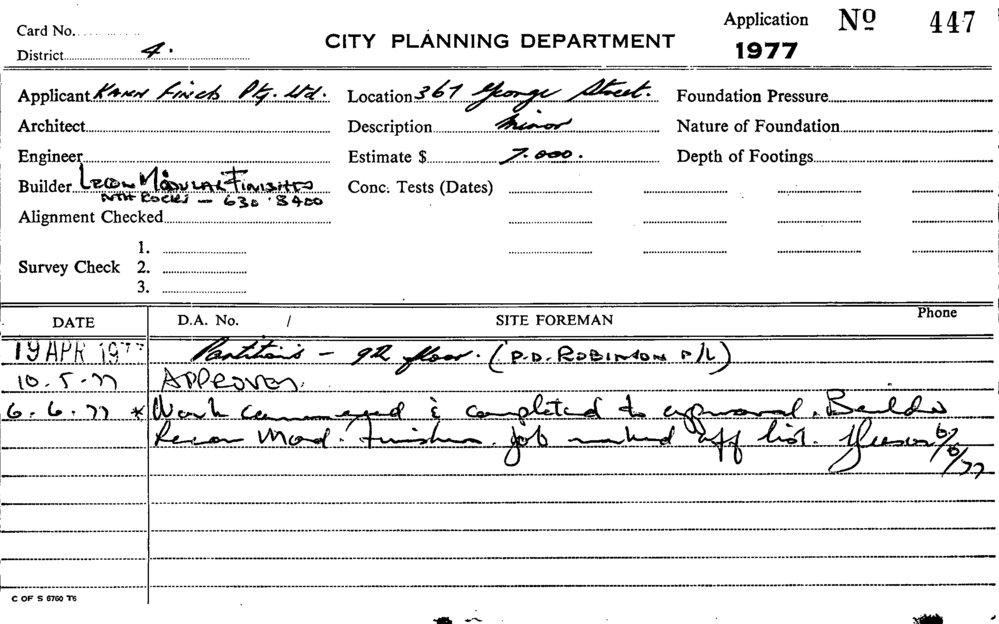 Card No.
Application Nº 447
District 4.
CITY PLANNING DEPARTMENT
1977
Applicant Kann Finch Pty. Ltd. Location 367 George Street. Foundation Pressure
Architect Description Minor Nature of Foundation
Engineer Estimate $ 7.000. Depth of Footings
Builder Modular Finishes Conc. Tests (Dates)
Nth Rocks - 630.8400
Alignment Checked
1.
Survey Check 2.
3.
DATE D.A. No. / SITE FOREMAN Phone
19 APR 1977 Partitions - 9th floor. (P.D. ROBINSON P/L)
10.5.77 APPROVED.
6.6.77 * Work commenced & completed to approval. Builder
Mod. Finishes. Job marked off list. 6/6/77
C OF S 6760 T6